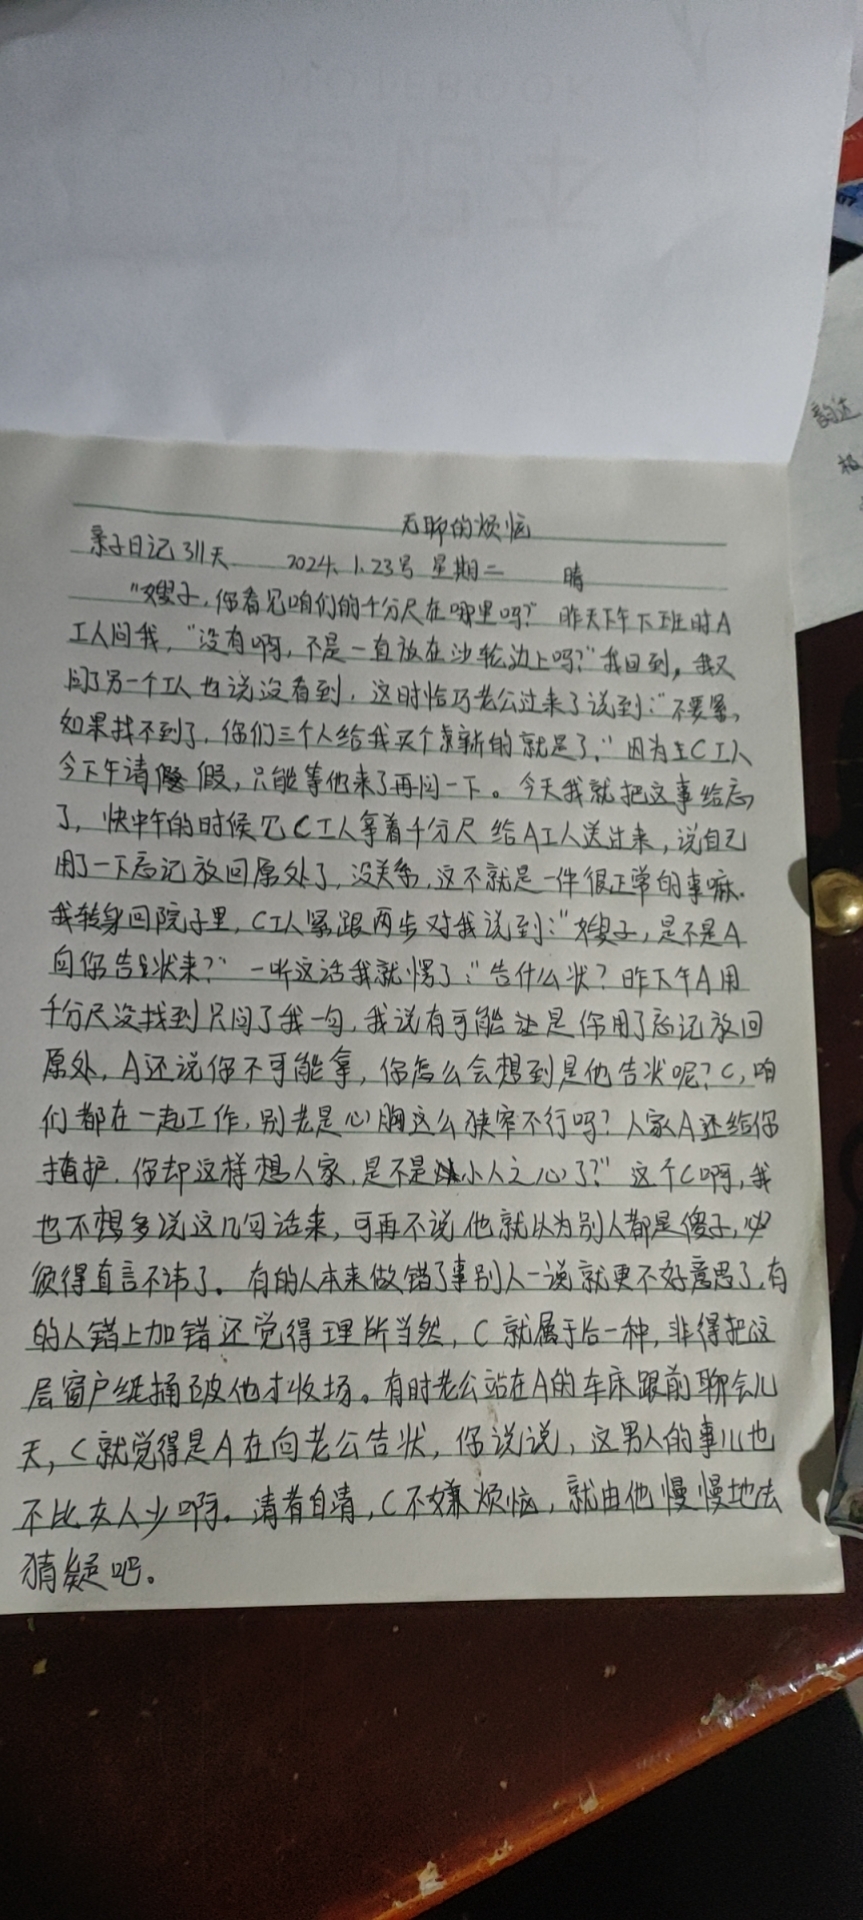 无聊的烦恼
亲子日记311天 2024.1.23号 星期二 晴
"嫂子,你看见咱们的千分尺在哪里吗?"昨天下午下班时A
工人问我,"没有啊,不是一直放在沙轮边上吗?"我回到,我又
问了另一个工人也说没看到,这时恰巧老公过来了说到:"不要紧,
如果找不到了,你们三个人给我买个崭新的就是了。"因为C工人
今下午请假,只能等他来了再问一下。今天我就把这事给忘
了,快中午的时候C工人拿着千分尺给A工人送过来,说自己
用了一下忘记放回原处了,没关系,这不就是一件很正常的事嘛.
我转身回院子里,C工人紧跟两步对我说到:"嫂子,是不是A
向你告状来?"一听这话我就愣了:"告什么状?昨下午A用
千分尺没找到只问了我一句,我说有可能是你用了忘记放回
原处,A还说你不可能拿,你怎么会想到是他告状呢?C,咱
们都在一起工作,别老是心胸这么狭窄不行吗?人家A还给你
掩护,你却这样想人家,是不是小人之心了?"这个C啊,我
也不想多说这几句话来,可再不说他就以为别人都是傻子,必
须得直言不讳了。有的人本来做错了事别人一说就更不好意思了,有
的人错上加错还觉得理所当然,C就属于后一种,非得把这
层窗户纸捅破他才收场。有时老公站在A的车床跟前聊会儿
天,C就觉得是A在向老公告状,你说说,这男人的事儿也
不比女人少啊。清者自清,C不嫌烦恼,就由他慢慢地去
猜疑吧。
韵达